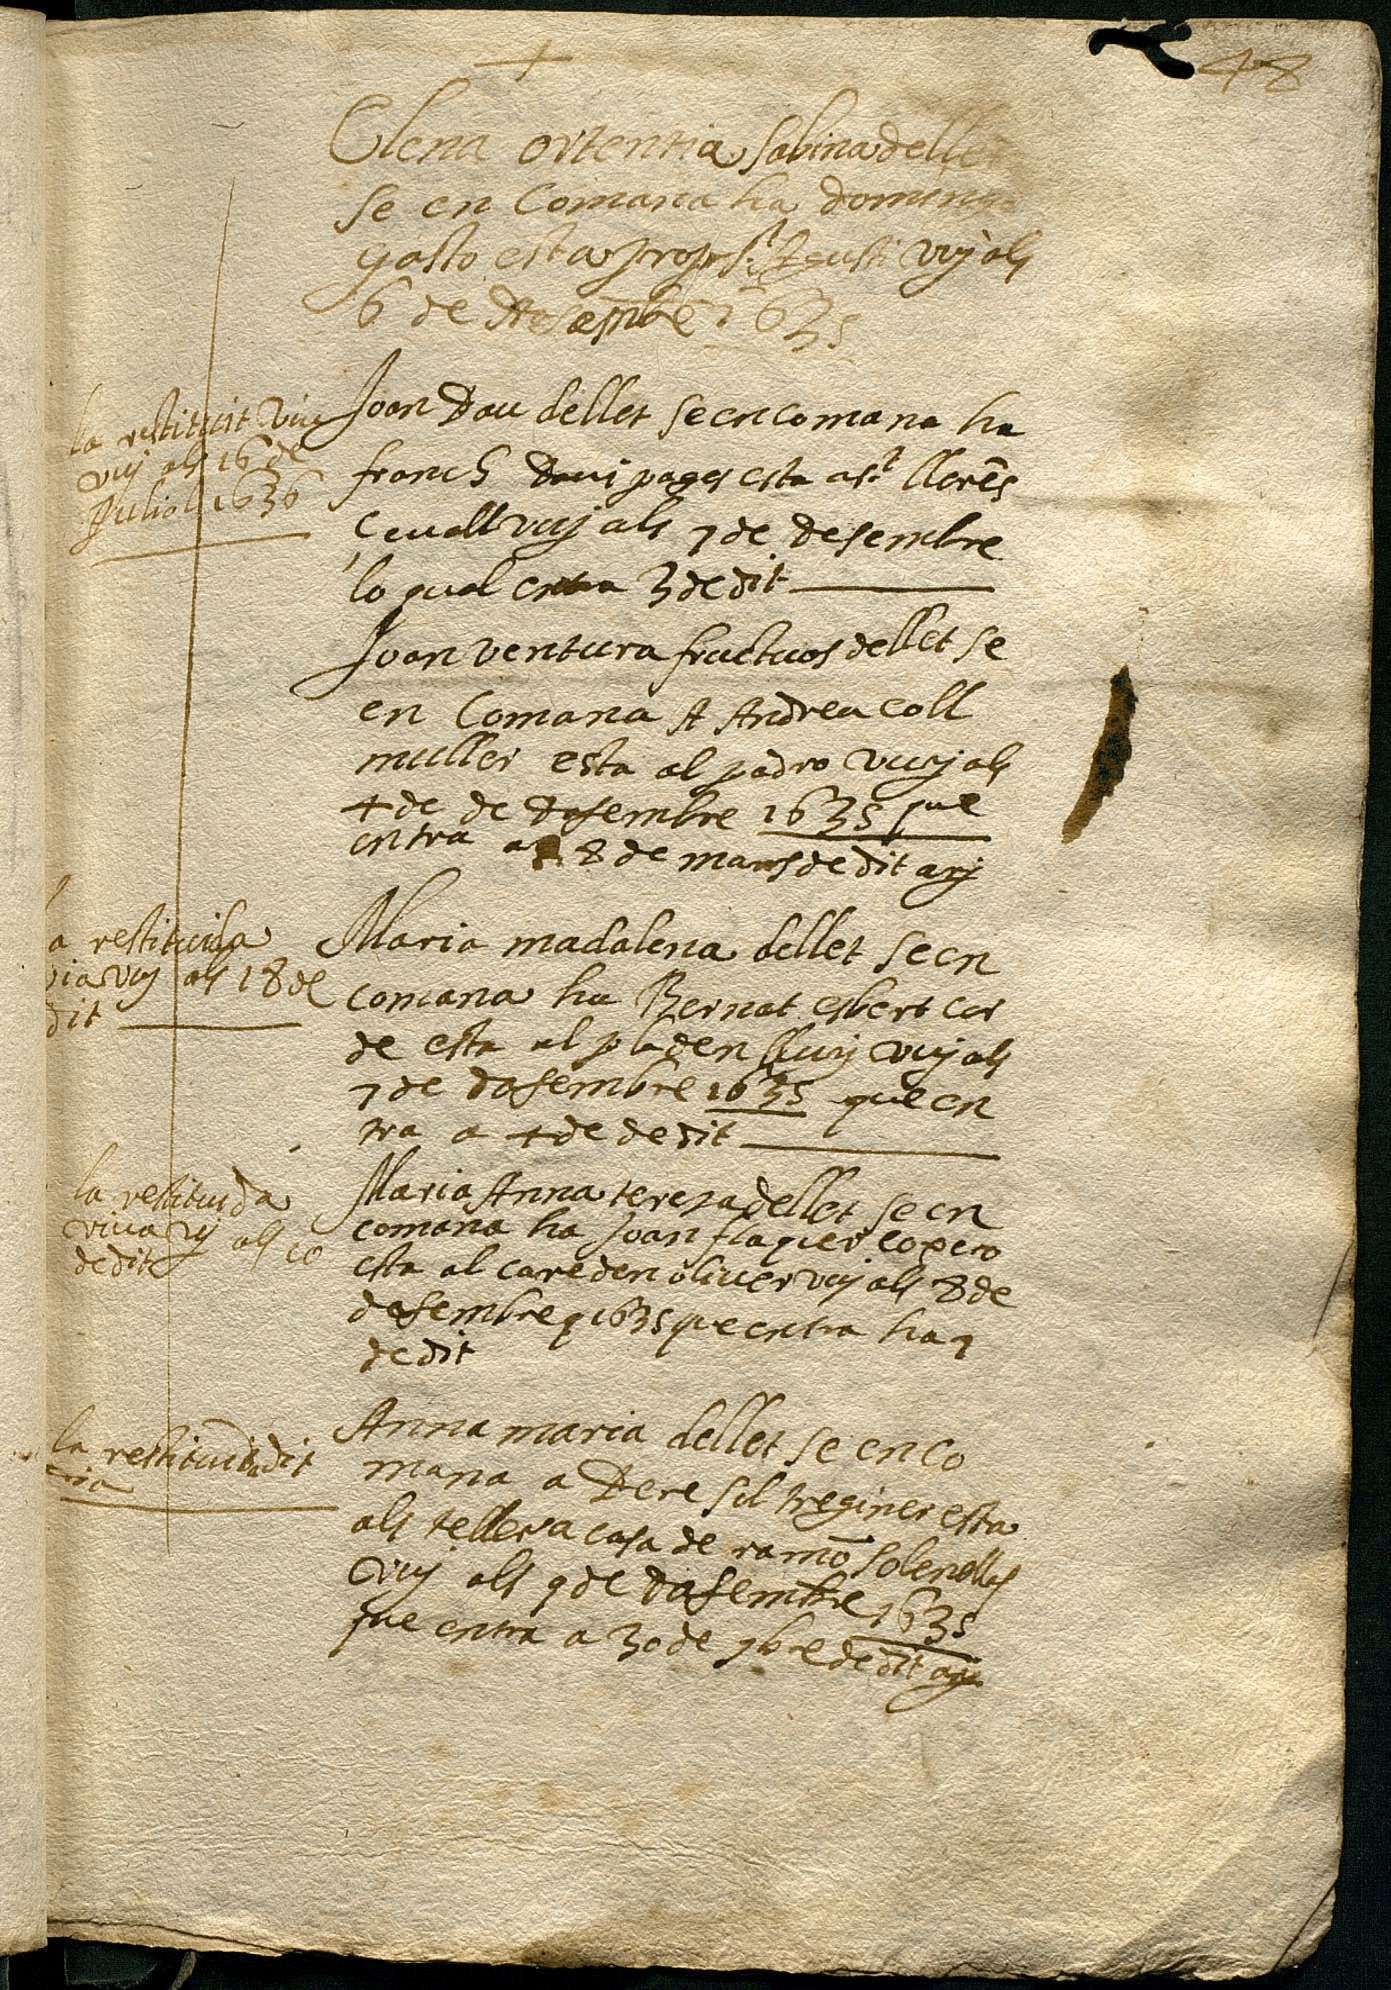 48
+
Elena ortentia sabina dellet
se en Comana ha domingo
gasto esta prop st Agusti vuy als
6 de Desembre 1635
la restituit viu
vuy als 16 de
Juliol 1636
Joan Dau dellet se encomana ha
franch Davi pages esta a st llorēs
Çavall vuy als 7 de desembre
lo qual entra 3 de dit
Joan ventura fructuos dellet se
en Comana A Andreu coll
muller esta al padro vuy als
4 de de desembre 1635 que
entra a 8 de mars de dit any
la restituida
via vuy als 18 de
dit
Maria madalena dellet se en
comana ha Bernat esbert cor
de esta al pla den lluy vuy als
7 de desembre 1635 que en
tra a 4 de de dit
la restituida
viua vy als 10
de dit
Maria Anna teresa dellet se en
comana ha Joan flaquer copero
esta al care den oliuer vuy als 8 de
desembre 1635 que entra ha 7
de dit
la restituida dit
dia
Anna maria dellet se en co
mana a Pere sol treginer esta
als tellers a casa de ramō solenelles
vuy als 9 de desembre 1635
que entra a 30 de 9bre de dit any